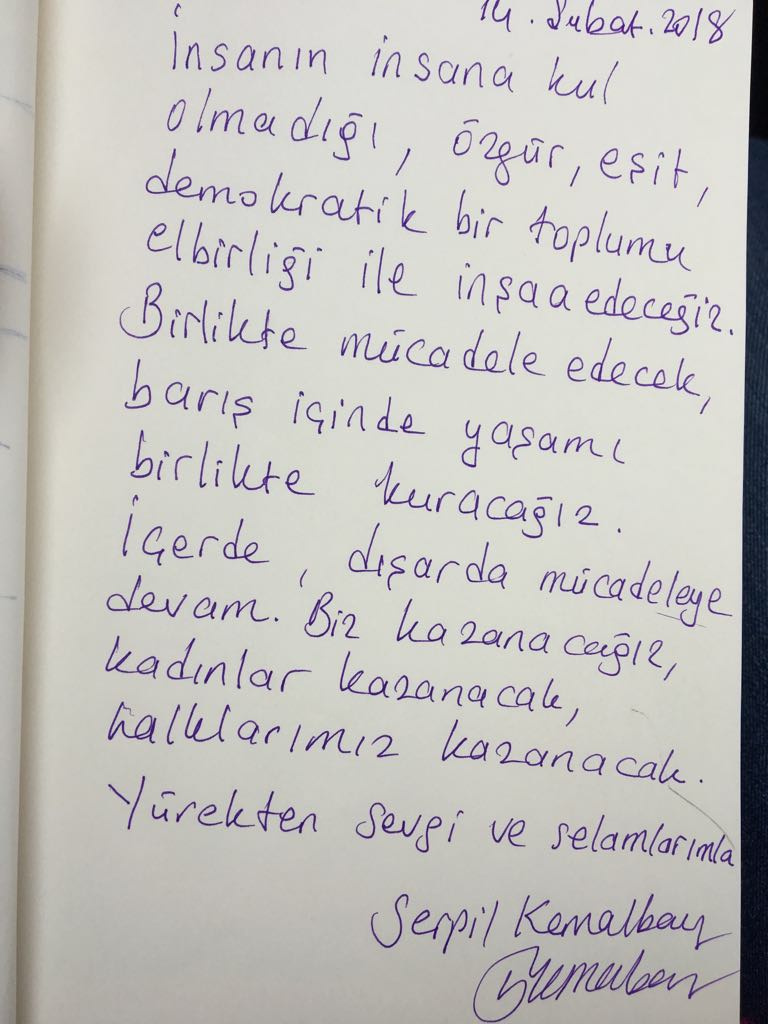 14. Şubat. 2018
İnsanın insana kul
olmadığı, özgür, eşit,
demokratik bir toplumu
elbirliği ile inşaa edeceğiz.
Birlikte mücadele edecek,
barış içinde yaşamı
birlikte kuracağız.
İçerde, dışarda mücadeleye
devam. Biz kazanacağız,
kadınlar kazanacak,
halklarımız kazanacak.
Yürekten sevgi ve selamlarımla
Serpil Kemalbay